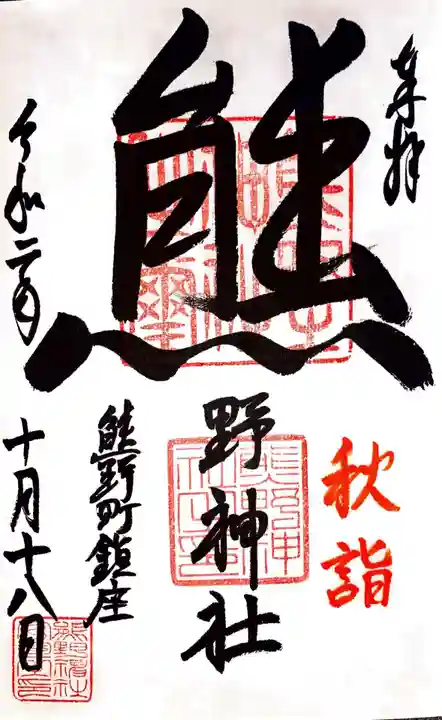 奉拝
秋詣
熊野神社
熊野町鎮座
令和二年
十月十八日